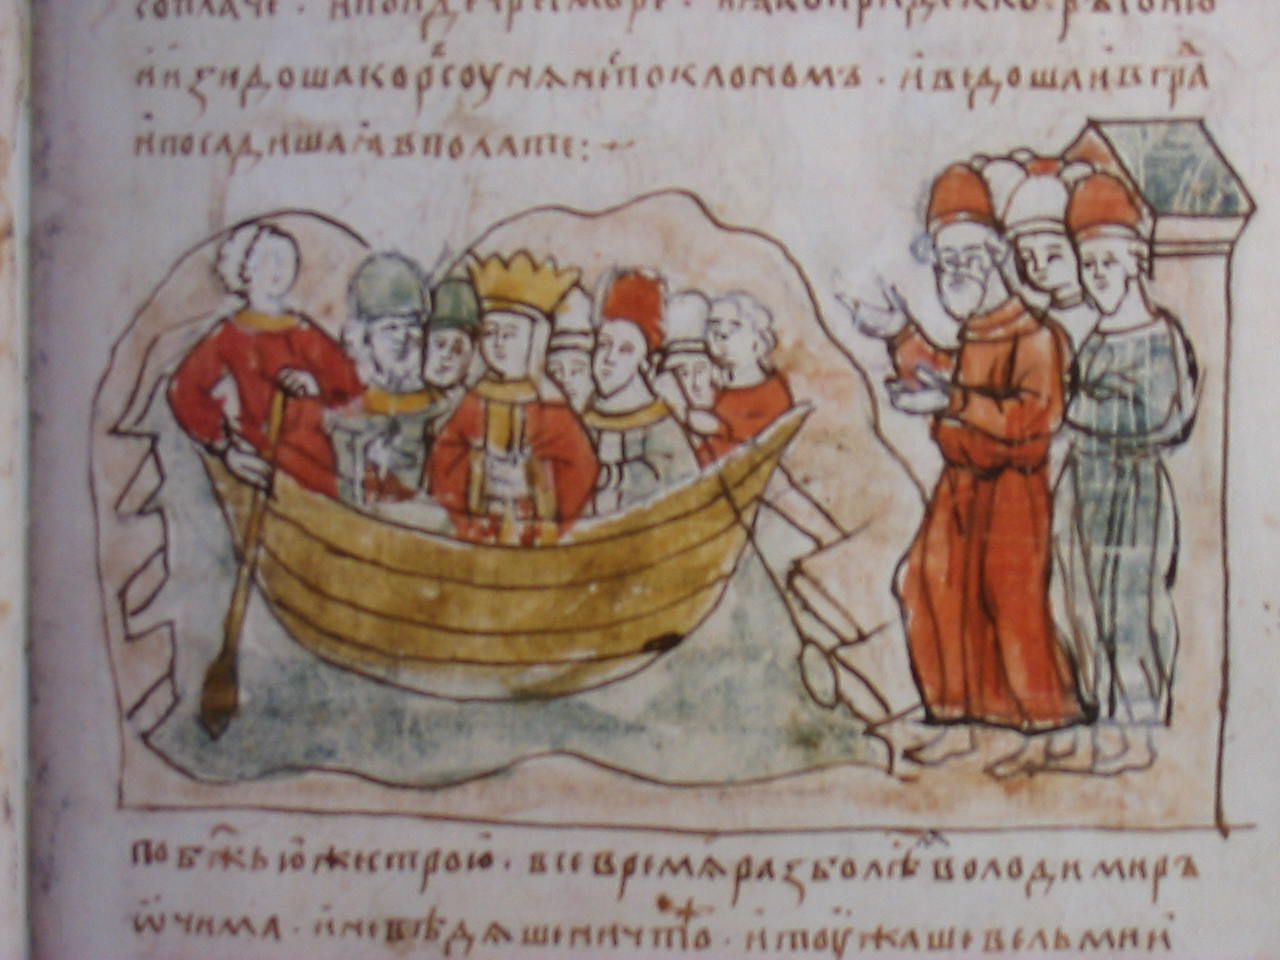 соплачемь · ипоиде чресморе · ꙗкопридекко рь҃сѹню
иизидоша корсоунѧнѣ споклономъ · ивъведошаи вгра
ипосадишаѧ вполатѣ :~
побж҃ьюжестрою · въсевремѧ разболѣ володимиръ
ѡчима · иневѣдѧшеничто · итоужашевельми и